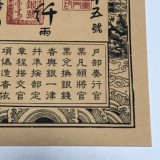 五號
仟兩
戶部奏行官
票凡願將官
票兌換銀錢
者與銀一律
并准按部定
章程搭交官
項偽造者依